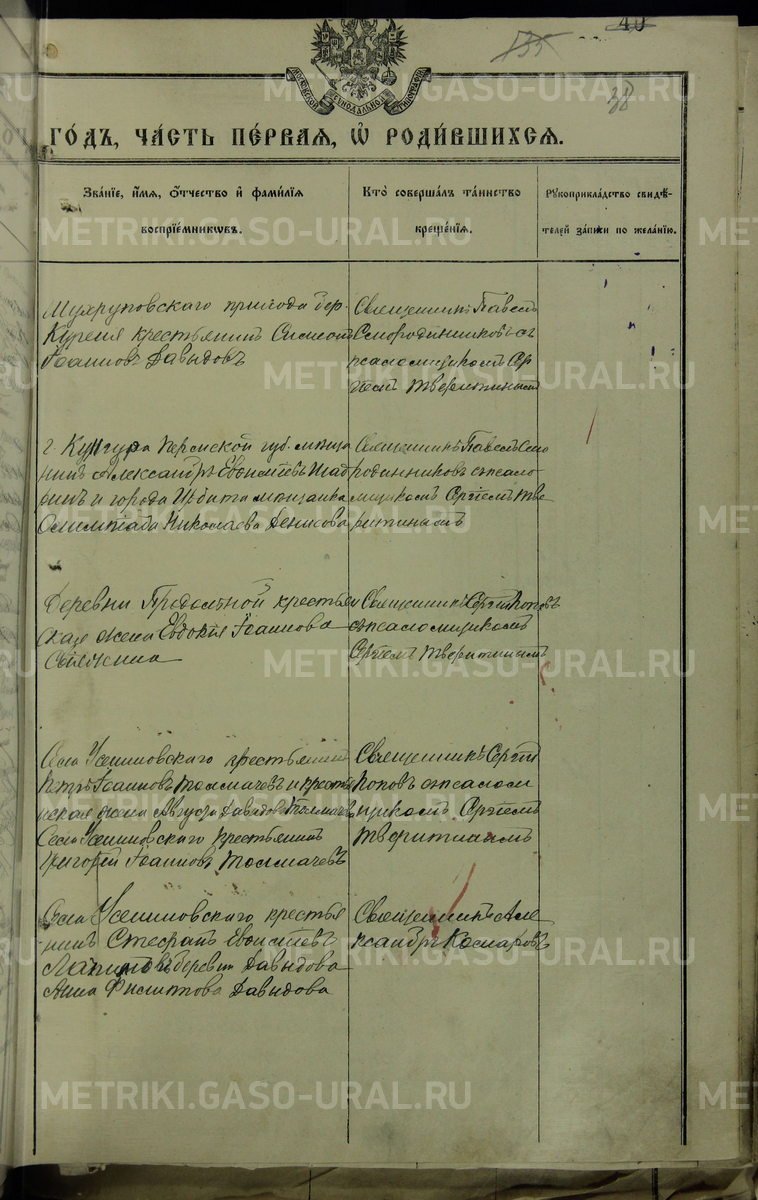 40
135
38
МОСКОВСКОЙ СѴНОДАЛЬНОЙ ТИПОГРАФІИ
ГО́ДЪ, ЧА́СТЬ ПЕ́РВАЯ, Ѡ РОДИ́ВШИХСЯ.
Зва́ніе, и́мя, о́тчество и фами́лія
воспріе́мниковъ.
Кто̀ соверша́лъ та́инство
креще́нія.
Рукоприкла́дство свидѣ́-
телей за́писи по жела́нію.
прихода дер.
крестьянинъ Симеонъ
Іоанновъ Давыдовъ
Священникъ Павелъ
Смородинниковъ съ
псаломщикомъ Сер
гіемъ Тверитинымъ
г. Кунгура Пермской губ. мѣща
нинъ Александръ Евоиміевъ
и города Ирбита мѣщанка
Николаева Денисова
Священникъ Павелъ Смо
родинниковъ съ псало
мщикомъ Сергіемъ Тве
ритинымъ
Деревни крестьян
ская жена Евдокія Іоаннова
Священникъ Сергій Поповъ
съ псаломщикомъ
Сергіемъ Тверитинымъ
Села Усениновскаго крестьянинъ
Петръ Іоанновъ Толмачевъ и кресть
янская жена Давидова Толмачева
Села Усениновскаго крестьянинъ
Григорій Іоанновъ Толмачевъ
Священникъ Сергій
Поповъ съ псалом
щикомъ Сергіемъ
Тверитинымъ
Села Усениновскаго крестья
нинъ Стефанъ Евоиміевъ
деревни Давыдова
Анна Филиппова Давыдова
Священникъ Але
ксандръ Комаровъ
METRIKI.GASO-URAL.RU